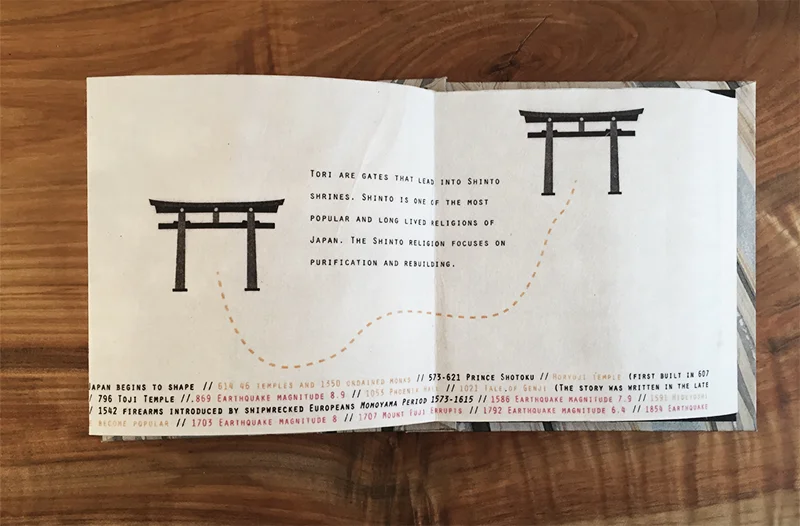 TORI ARE GATES THAT LEAD INTO SHINTO
SHRINES. SHINTO IS ONE OF THE MOST
POPULAR AND LONG LIVED RELIGIONS OF
JAPAN. THE SHINTO RELIGION FOCUSES ON
PURIFICATION AND REBUILDING.
JAPAN BEGINS TO SHAPE // 614 46 TEMPLES AND 1350 UNDAINED MONKS // 573-621 PRINCE SHOTOKU // HORYUJI TEMPLE (FIRST BUILT IN 607
/ 796 TOJI TEMPLE //.869 EARTHQUAKE MAGNITUDE 8.9 // 1053 PHOENIX HALL // 1021 TALE OF GENJI (THE STORY WAS WRITTEN IN THE LATE
/ 1542 FIREARMS INTRODUCED BY SHIPWRECKED EUROPEANS MOMOYAMA PERIOD 1573-1615 // 1586 EARTHQUAKE MAGNITUDE 7.9 // 1591
BECOME POPULAR // 1703 EARTHQUAKE MAGNITUDE 8 // 1707 MOUNT FUJI ERRUPTS // 1792 EARTHQUAKE MAGNITUDE 6.4 // 1854 EARTHQUAKE